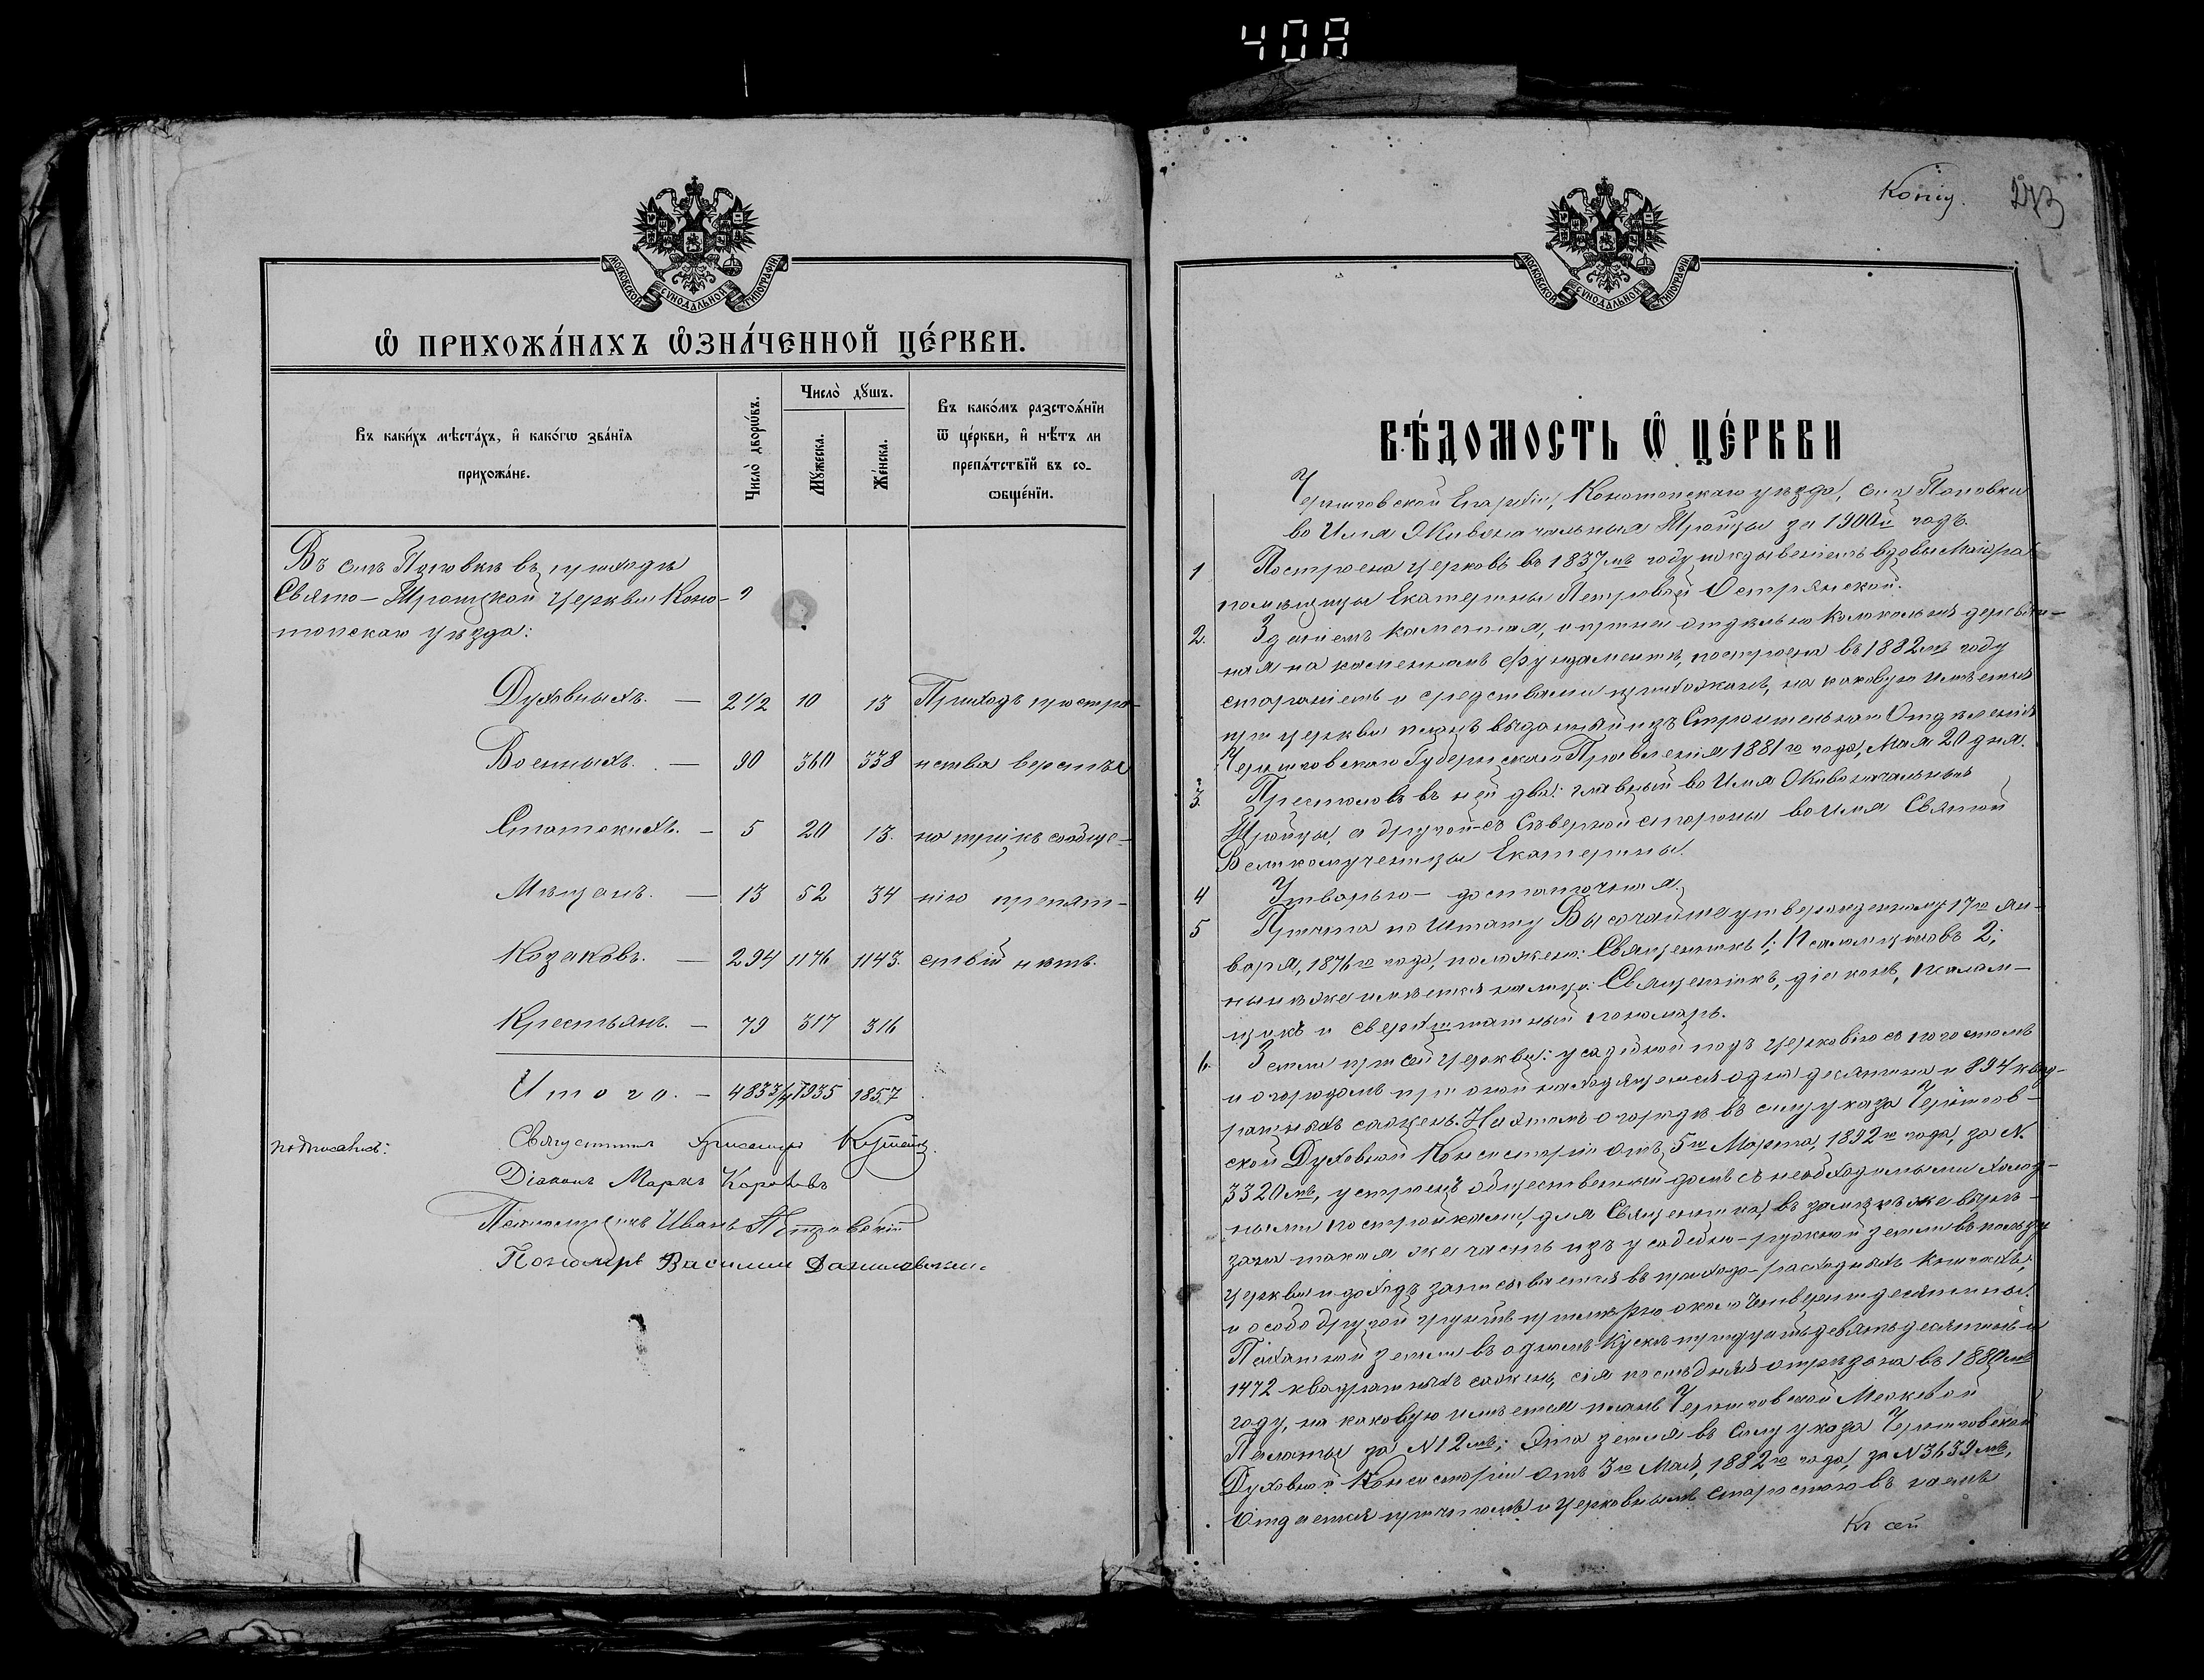 40A
МОСКОВСКОЙ СУНОДАЛЬНОЙ ТИПОГРАФІИ
Ѡ ПРИХОЖА́НАХЪ Ѡ҆ЗНА́ЧЕННОЙ ЦЕ́РКВИ.
Въ каки́хъ мѣста́хъ, и҆ како́гѡ зва́нїѧ
прихожа́не.
Число̀ дворѡ́въ.
Число̀ дꙋ́шъ.
Мꙋ́жеска.
Же́нска.
Въ како́мъ разстоѧ́нїи
ѿ це́ркви, и҆ нѣ́тъ ли
препѧ́тствїй въ со-
ѻбще́нїи.
Въ селѣ Поповкѣ въ приходѣ
Свято-Троицкой церкви Коно-
топскаго уѣзда:
Духовныхъ. — 2 1/2 10 13 Приходъ простра-
Военныхъ. — 90 360 338 нства верст
Статскихъ. — 5 20 13. сообще-
Мѣщанъ. — 13 52 34 нію препят-
Козаковъ. — 294 1176 1143. ствій нѣтъ.
Крестьянъ. — 79 317 316
Итого. — 483 3/4 1935 1857
подписались:
Священникъ
Діаконъ Маркъ
Псаломщикъ Иванъ
Пономарь Василий Данилевский.
Коніg. 273
МОСКОВСКОЙ СУНОДАЛЬНОЙ ТИПОГРАФІИ
ВѢ́ДОМОСТЬ Ѡ ЦЕ́РКВИ
Черниговской Епархіи, Конотопскаго уѣзда, села Поповки
во Имя Живоначальныя Тройцы за 1900й годъ.
1 Построена церковь въ 1837мъ году иждивеніемъ вдовы Маіора
помѣщицы Екатерины Петровой Острянской.
2. Зданіемъ каменная, при ней отдѣльно колокольня деревян-
ная на каменномъ фундаментѣ, построена въ 1882мъ году
стараніемъ и средствами прихожанъ, на каковую имѣется
при церкви планъ выданный изъ Строительнаго Отдѣленія
Черниговскаго Губернскаго Правленія 1881го года, Мая 20 дня.
3. Престоловъ въ ней два: главный во Имя Живоначальныя
Тройцы, а другой съ Сѣверной стороны во имя Святой
Великомученицы Екатерины.
4 Утварью — достаточная.
5 Причта по Штату Высочайше утвержденному 17го Ян-
варя, 1876го года, положено: Священникъ 1; Псаломщиковъ 2;
нынѣ же имѣется на лицо: Священникъ, діаконъ, псалом-
щикъ и сверхштатный пономарь.
6. Земли при сей церкви: усадебной подъ церковію съ погостомъ
и огородомъ при оной находящемся одна десятина и 894 квад-
ратныхъ сажень. На этомъ огородѣ въ силу указа Чернигов-
ской Духовной Консисторіи отъ 5го Марта, 1892го года, за N
3320мъ, устроенъ общественный домъ съ необходимыми холод-
ными постройками, для Священника, въ замѣнъ же
зана такая же часть изъ усадебно-ружной земли въ пользу
церкви и доходъ записывается въ приходо-расходныхъ книгахъ;
и особо другой грунтъ примѣрно около четверти десятины.
Пахатной земли въ одномъ кускѣ тридцать девять десятинъ и
1472 квадратныхъ сажень, сія послѣдняя отрѣзана въ 1880мъ
году, на каковую имѣется планъ Черниговской Межевой
Палаты за N12мъ; Эта земля въ силу указа Черниговской
Духовной Консисторіи отъ 3го Мая, 1882го года, за N3639мъ,
отдается причтомъ и церковнымъ старостою въ наемъ
Къ сей